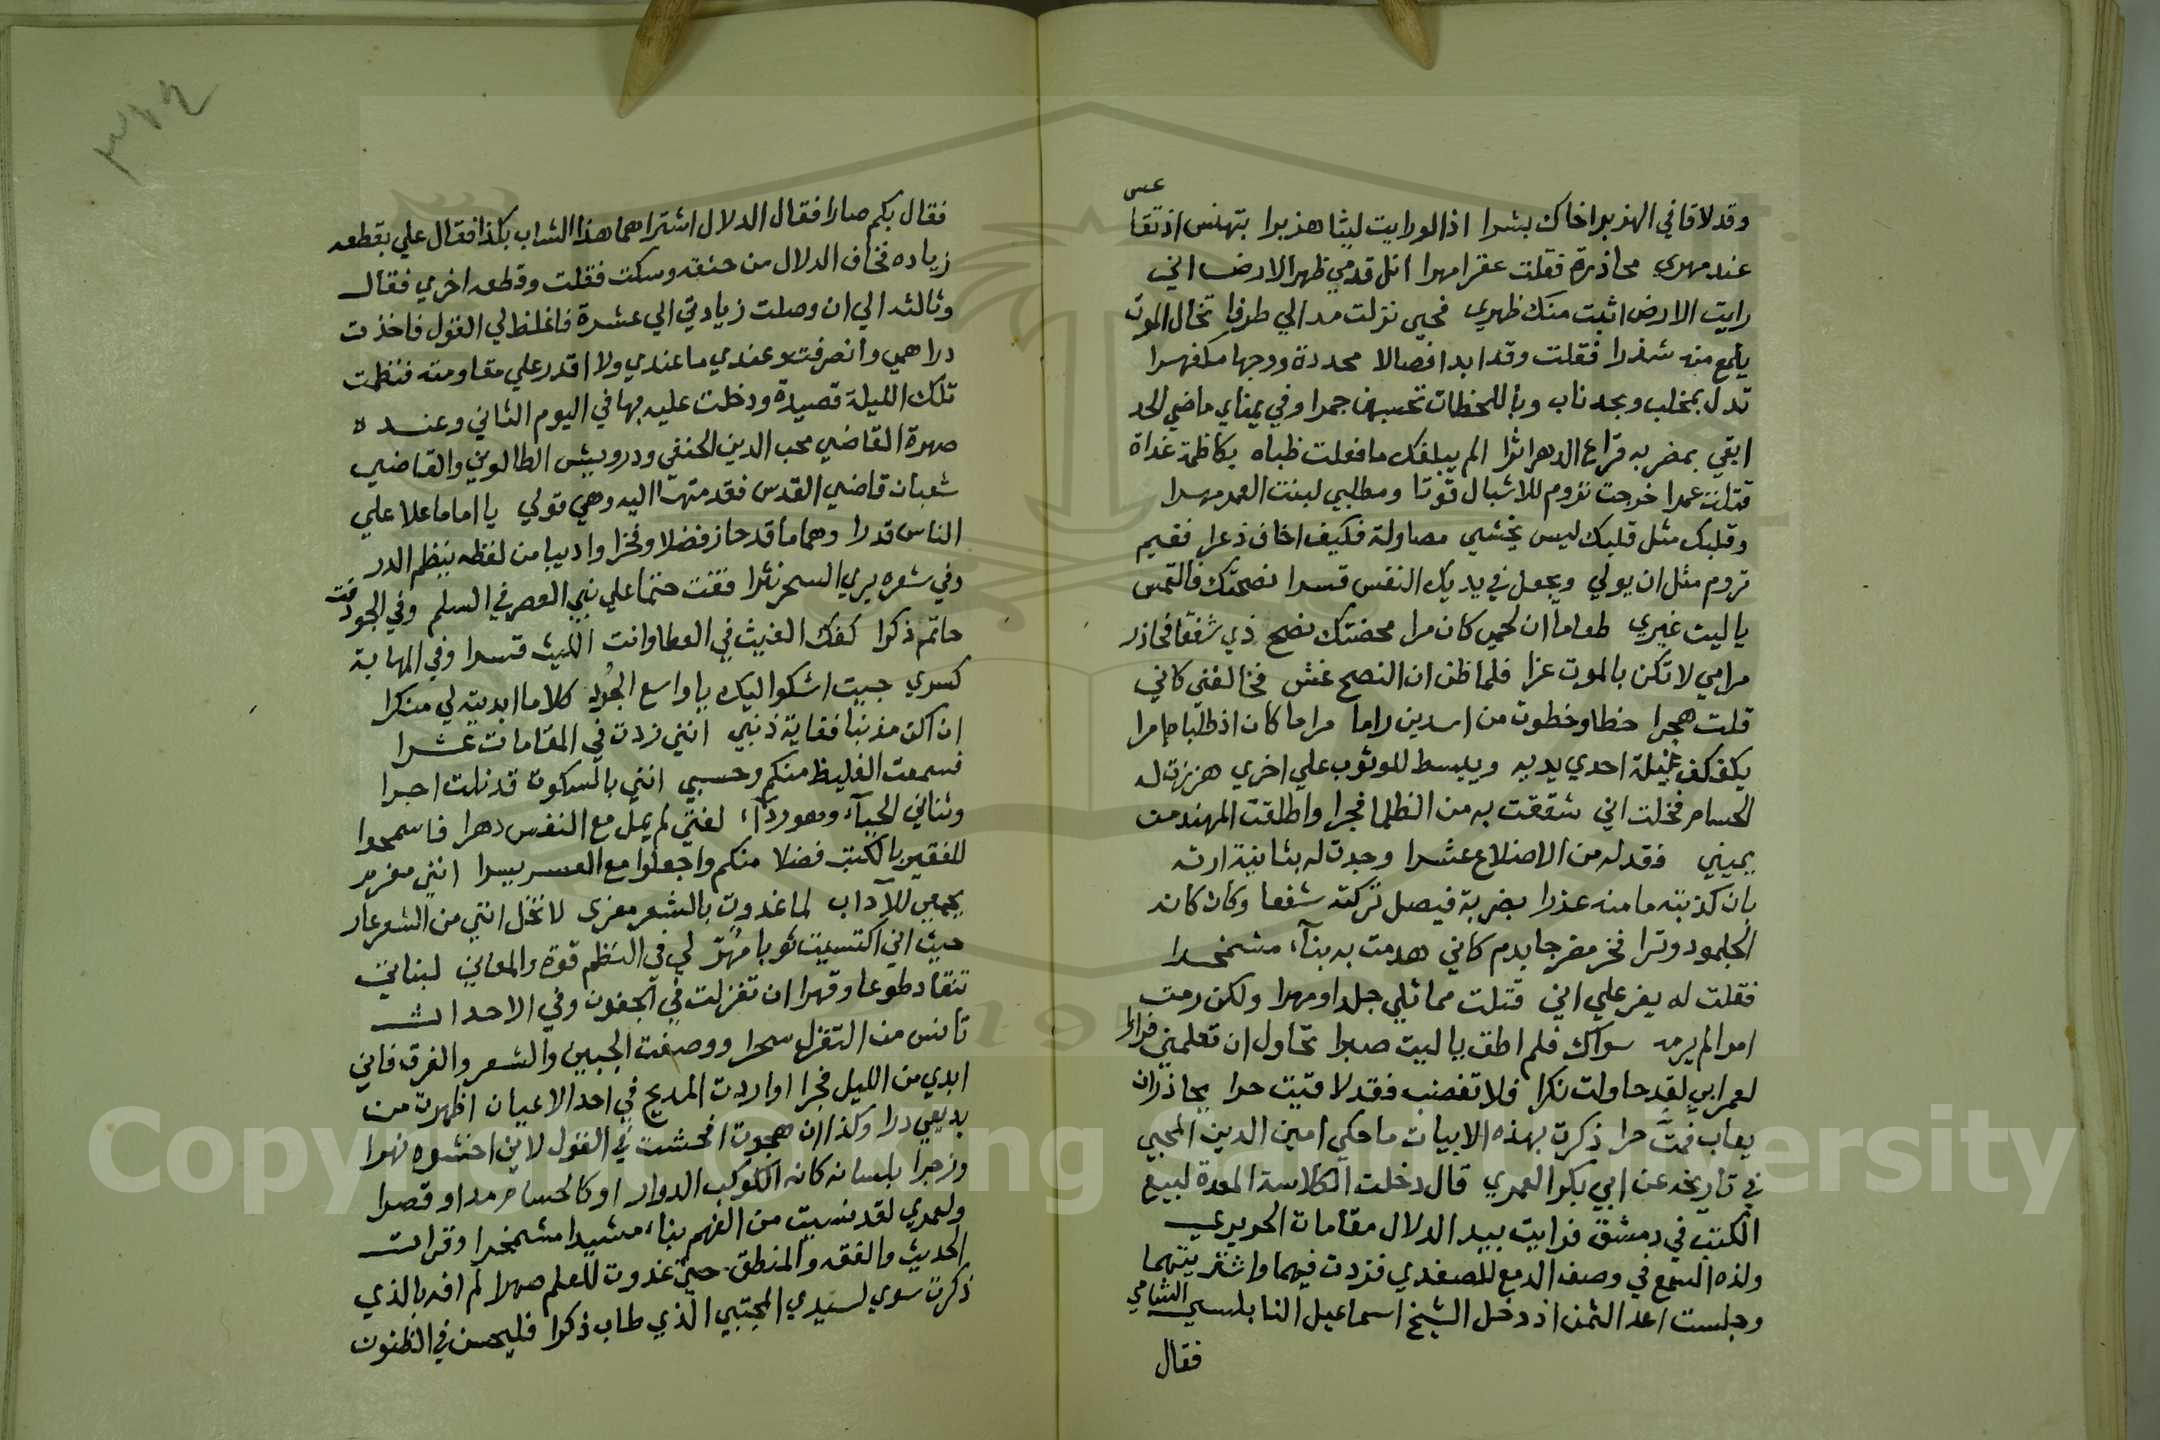 وقد لاقا في الهزبر اخاك بشرا اذا لو رايت ليثا هزبرا بتهنس اذ تقا عسى
عند مهري محاذرة فقلت عقرا مهرا انل قدمي ظهر الارض اني
رايت الارض اثبت منك ظهري فحين نزلت مد الي طرفا تخال الموت
يلمع منه شذرا فقلت وقد ابدا فصالا محددة ووجها مكفهرا
تدل بمخلب وبحد ناب وباللحظات تحسبهن جمرا وفي يمناي ماضي الحد
ابقي بمضربه قراع الدهر اثرا الم يبلغك ما فعلت ظباه بكاظمة غداة
قتلت عمرا خرجت تروم للاشبال قوتا ومطلبي لبنت العم مهرا
وقلبك مثل قلبك ليس يخشي مصاولة فكيف اخاف ذعرا ففيم
تروم مثل ان يولي ويجعل في يديك النفس قسرا نصحتك فالتمس
يا ليت غيري طعاما ان لحمي كان مرا محضتك نصح ذي شفقا فحاذر
مرامي لا تكن بالموت غرا فلما ظن ان النصح غش فخالفني كاني
قلت هجرا خطا وخطوت من اسدين راما مراما كان اذ طلبا مرا
يكفكف غيلة احدي يديه ويبسط للوثوب علي اخري هززت له
الحسام فخلت اني شققت به من الظلما فجرا واطلقت المهند من
يميني فقد له من الاضلاع عشرا وجدت له بثانية ارته
بان كذبته ما منه عذرا بضربة فيصل تركته شفعا وكان كانه
الجلمود وترا فخر مضرجا بدم كاني هدمت به بناء مشمخرا
فقلت له يعز علي اني قتلت مماثلي جلدا ومهرا ولكن رمت
امرا لم يرمه سواك فلم اطق يا ليت صبرا تحاول ان تعلمني فرارا
لعمر ابي لقد حاولت نكرا فلا تغضب فقد لاقيت حرا يحاذر ان
يعاب فمت حرا ذكرت بهذه الابيات ما حكي امين الدين المحبي
في تاريخه عن ابي بكر العمري قال دخلت الكلاسة المعدة لبيع
الكتب في دمشق فرايت بيد الدلال مقامات الحريري
ولذه السمع في وصف الدمع للصفدي فزدت فيهما واشتريتهما
وجلست اعد الثمن اذ دخل الشيخ اسماعيل النابلسي الشامي
فقال
فقال بكم صارا فقال الدلال اشتراهما هذا الشاب بكذا فقال علي بقطعه
زياده فخاف الدلال من حنقه وسكت فقلت وقطعه اخري فقال
وثالثه الي ان وصلت زيادتي الي عشرة فاغلظ لي القول فاخذت
دراهمي وانصرفت وعندي ما عندي ولا اقدر علي مقاومته فنظمت
تلك الليلة قصيدة ودخلت عليه بها في اليوم الثاني وعنده
صهره القاضي محب الدين الحنفي ودرويش الطالوي والقاضي
شعبان قاضي القدس فقدمتها اليه وهي قولي يا اماما علا علي
الناس قدرا وهماما قد حاز فضلا وفخرا واديبا من لفظه ينظم الدر
وفي شعره يري السحر نثرا فقت حتما علي نبي العصر في السلم وفي الجود فت
حاتم ذكرا كفك الغيث في العطا وانت الليث قسرا وفي المهابة
كسري جيت اشكوا اليك يا واسع الجود كلاما ابديته لي منكرا
ان اكن مذنبا فغاية ذنبي انني زدت في المقامات عشرا
فسمعت الغليظ منكم وحسبي انني بالسكوت قد نلت اجرا
وثناني الحياء وهو رداء لفتي لم يمل مع النفس دهرا فاسمحوا
للفقير بالكتب فضلا منكم واجعلوا مع العسر يسرا انني مغرم
بجمعي للآداب لما غدوت بالشعر مغري لا تخل انني من الشعر عار
حيث اني اكتسيت ثوبا مهرا لي في النظم قوة والمعاني لبناني
تنقاد طوعا وقهرا ان تغزلت في الجفون وفي الاحداث
تانس من التغزل سحرا ووصفت الجبين والشعر والفرق فاني
ابدي من الليل فجرا او اردت المديح في احد الاعيان اظهرت من
بديعي درا وكذا ان هجوت افحشت في القول لا من اخشوه نهرا
وزجرا بلسان كانه الكوكب الدوار او كالحسام مدا وقصرا
ولعمري لقد نسيت من الفهم بناء مشيدا مشمخرا وقرات
الحديث والفقه والمنطق حتي غدوت للعلم صهرا لم افه بالذي
ذكرت سوي لسيدي المجتبي الذي طاب ذكرا فليحسن في الظنون
Copyright © King Saud University